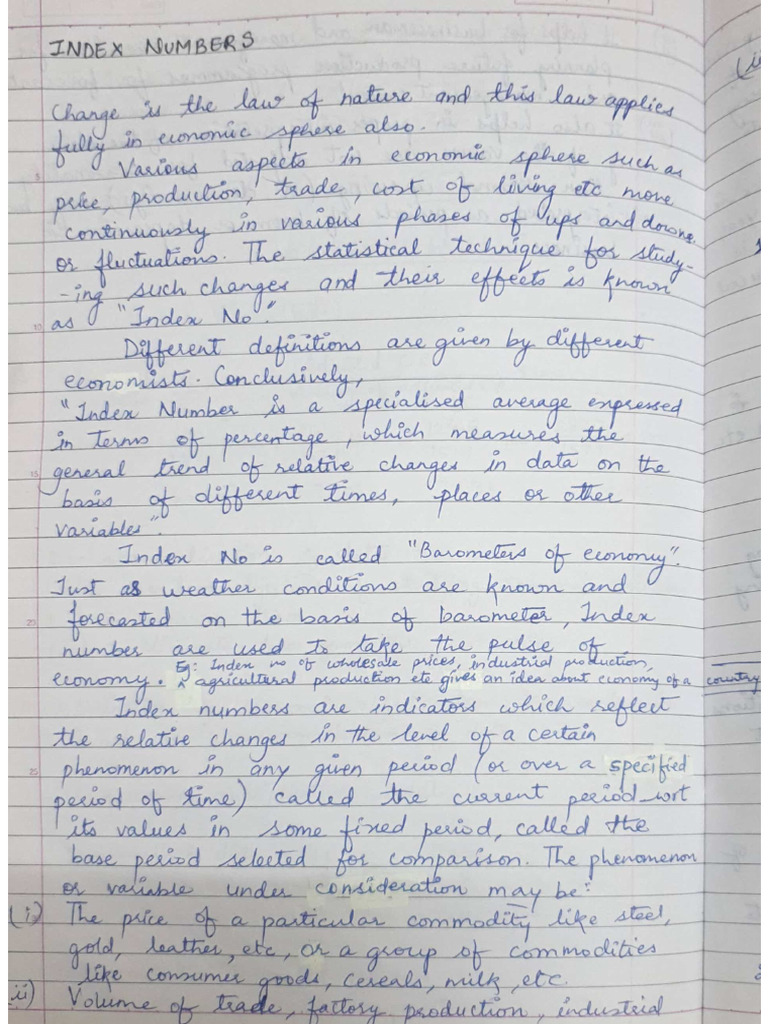 INDEX NUMBERS
Change is the law of nature and this law applies
fully in economic sphere also.
Various aspects in economic sphere such as
price, production, trade, cost of living etc move
continuously in various phases of ups and downs
or fluctuations. The statistical technique for study-
-ing such changes and their effects is known
as "Index No".
Different definitions are given by different
economists. Conclusively,
"Index Number is a specialised average expressed
in terms of percentage, which measures the
general trend of relative changes in data on the
basis of different times, places or other
variables".
Index No is called "Barometers of economy".
Just as weather conditions are known and
forecasted on the basis of barometer, Index
number are used to take the pulse of
economy. Eg: Index no of wholesale prices, industrial production,
agricultural production etc gives an idea about economy of a country
Index numbers are indicators which reflect
the relative changes in the level of a certain
phenomenon in any given period (or over a specified
period of time) called the current period wrt
its values in some fixed period, called the
base period selected for comparison. The phenomenon
or variable under consideration may be:
(i) The price of a particular commodity like steel,
gold, leather, etc, or a group of commodities
like consumer goods, cereals, milk, etc.
ii) Volume of trade, factory production, industrial